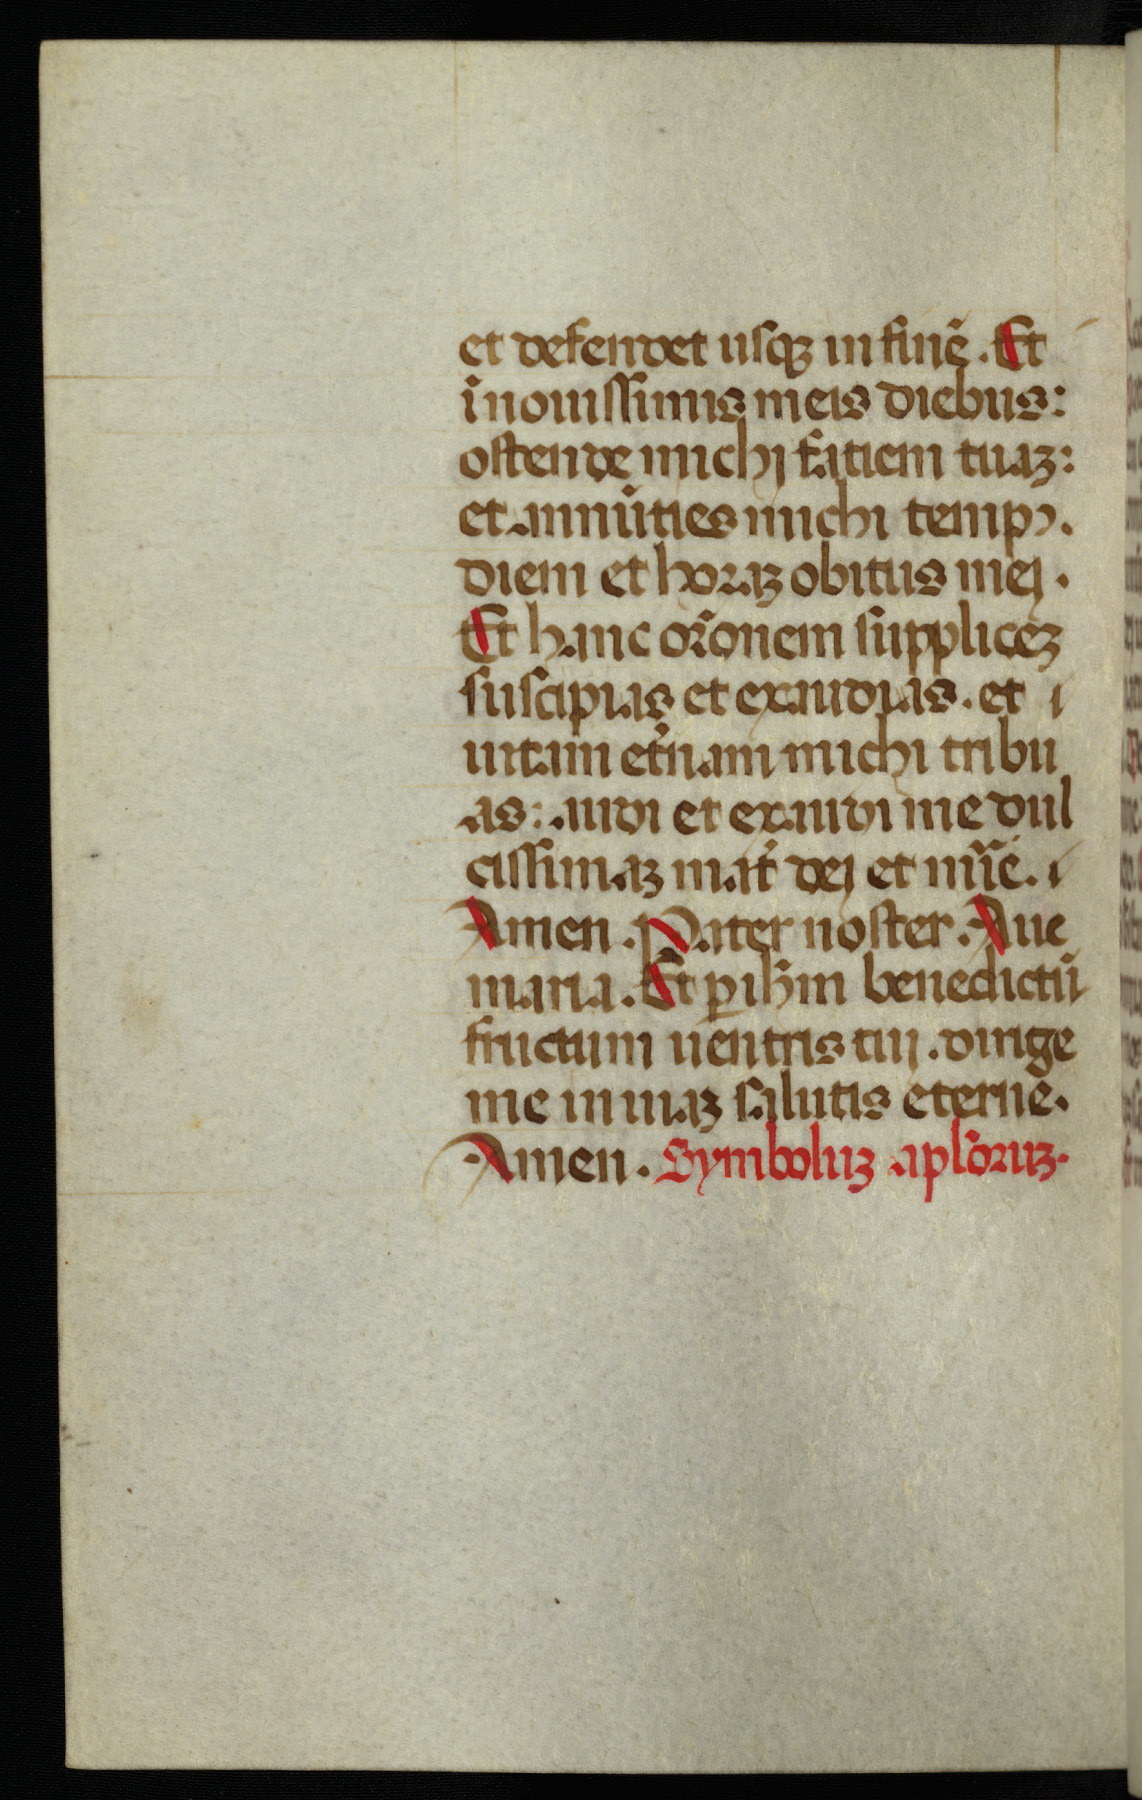 et defendet usqꝫ in finē. Et
ī nouissimis meis diebus:
ostende michj fatiem tuaꝫ:
et annūties michi tempꝯ.
diem et horaꝫ obitus mej.
Et hanc orōnem suppliceꝫ
suscipias et exaudias. et
uitam et̄nam michi tribu
as: audi et exaudi me dul
cissimaꝫ mat̄ dej et mīe.
Amen. Pater noster. Aue
maria. Et ꝑ ihm̄ benedictū
fructum uentris tuj. dirige
me in uiaꝫ salutis eterne.
Amen. Symboluꝫ aplōruꝫ.